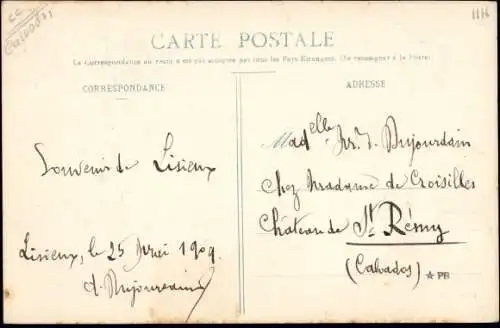 CC
Calvados
1116
CARTE POSTALE
La Correspondance au recto n'est pas acceptée par tous les Pays Étrangers. (Se renseigner à la Poste)
CORRESPONDANCE
Souvenir de Lisieux
Lisieux, le 25 Mai 1909.
ADRESSE
Mad elle Dujourdain
Chez Madame de Croisilles
Château de St. Rémy
(Calvados)
★ PR